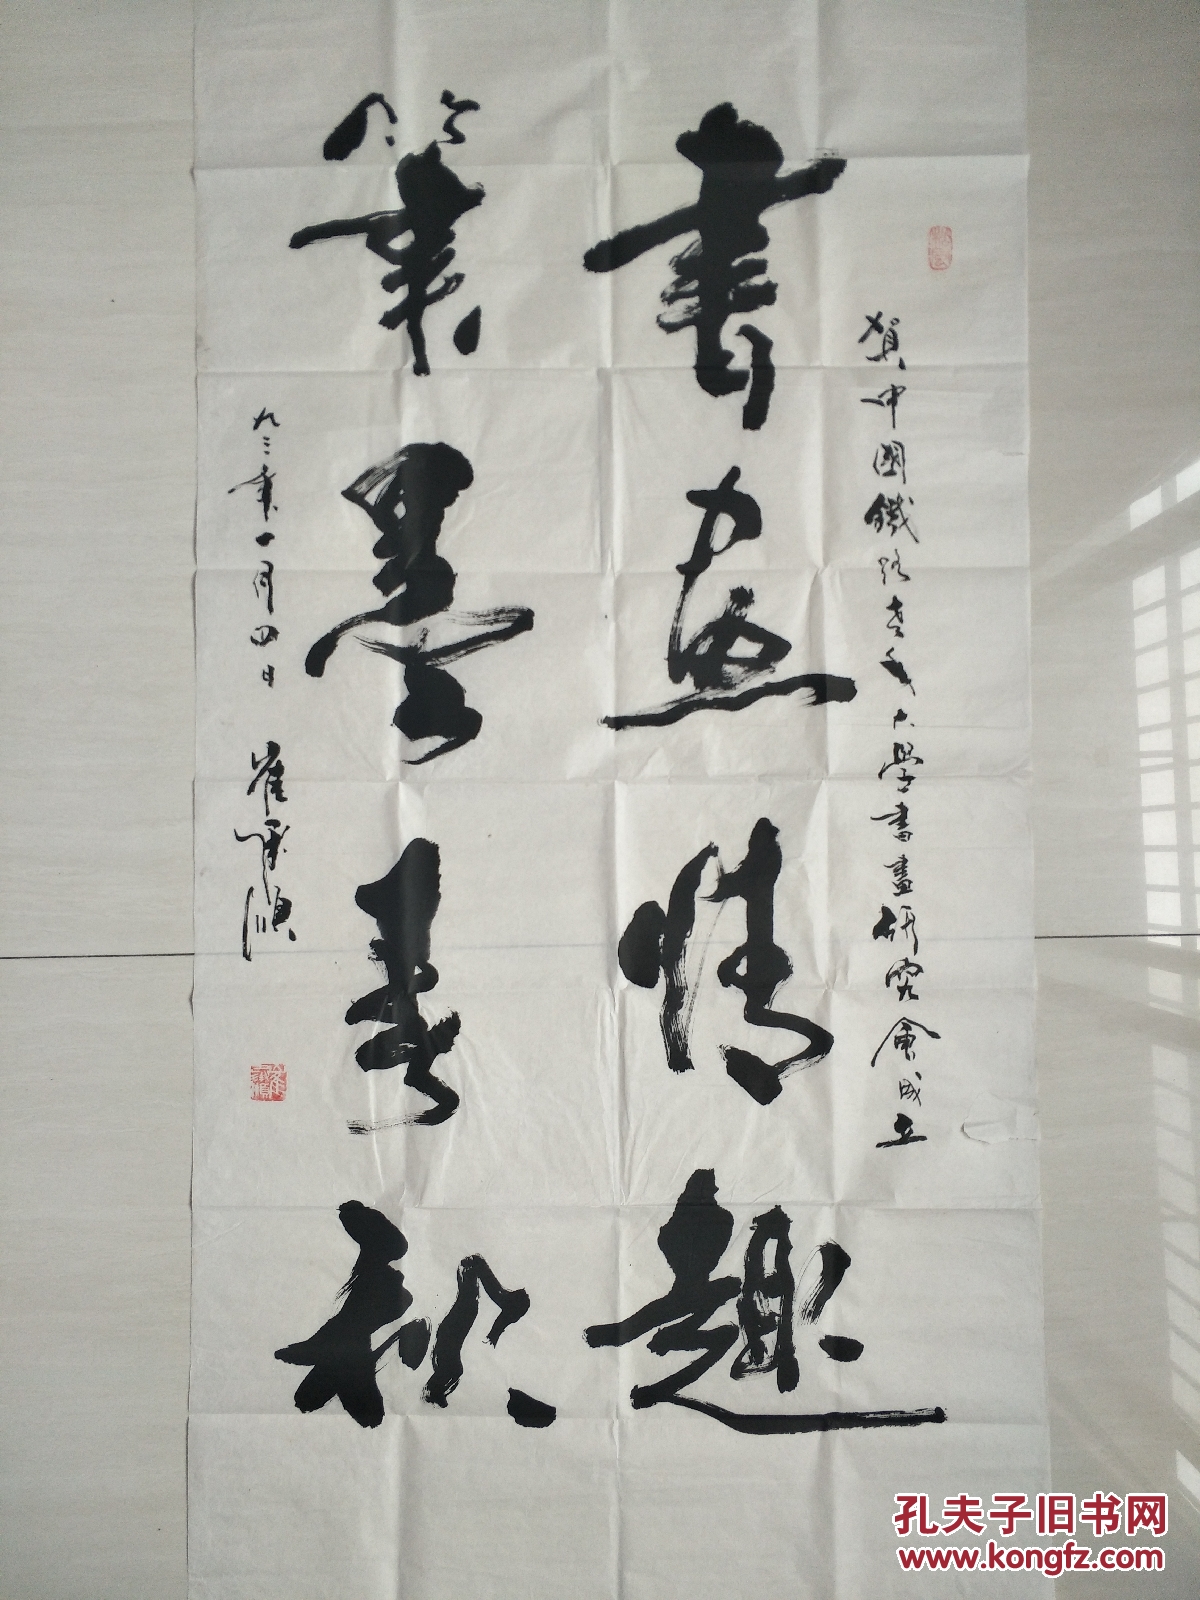 贺中國鐵路老年大學書畫研究會成立
書画情趣
筆墨春秋
九三年十一月四日 崔承顺
孔夫子旧书网
www.kongfz.com